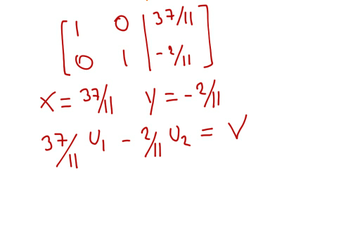 [1 0 | 37/11]
[0 1 | -2/11]
x = 37/11 y = -2/11
37/11 U₁ - 2/11 U₂ = V